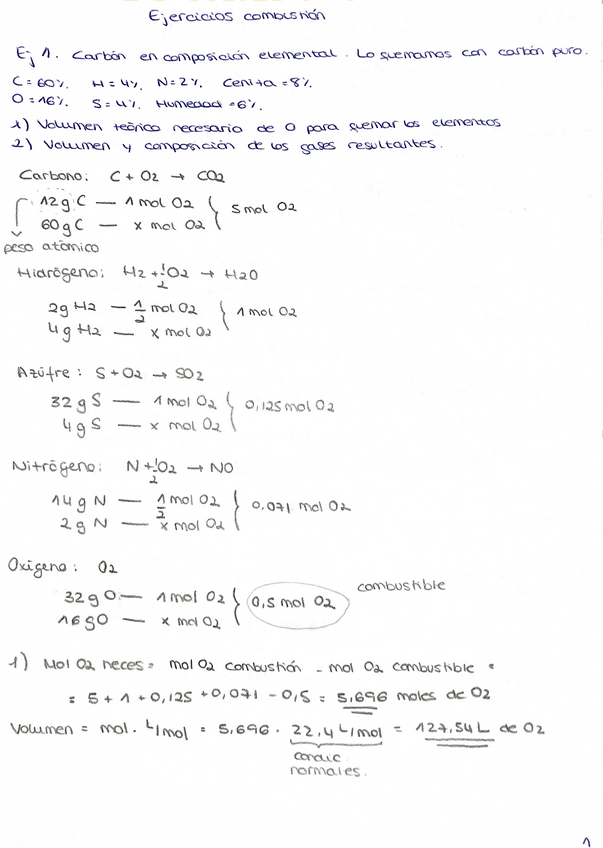 Ejercicios combustión
Ej 1. Carbón en composición elemental. Lo quemamos con carbón puro.
C = 60%. H = 4%. N = 2%. Ceniza = 8%.
O = 16%. S = 4%. Humedad = 6%.
1) Volumen teórico necesario de O para quemar los elementos
2) Volumen y composición de los gases resultantes.
Carbono: C + O2 → CO2
12g C — 1 mol O2
60g C — x mol O2
5 mol O2
peso atómico
Hidrógeno: H2 + 1/2 O2 → H2O
2g H2 — 1/2 mol O2
4g H2 — x mol O2
1 mol O2
Azúfre: S + O2 → SO2
32 g S — 1 mol O2
4g S — x mol O2
0,125 mol O2
Nitrógeno: N + 1/2 O2 → NO
14g N — 1/2 mol O2
2g N — x mol O2
0,071 mol O2
Oxígeno: O2
32g O — 1 mol O2
16 g O — x mol O2
0,5 mol O2
combustible
1) Mol O2 neces = mol O2 combustión - mol O2 combustible =
= 5 + 1 + 0,125 + 0,071 - 0,5 = 5,696 moles de O2
Volumen = mol · L/mol = 5,696 · 22,4 L/mol = 127,54 L de O2
condic.
normales.
1